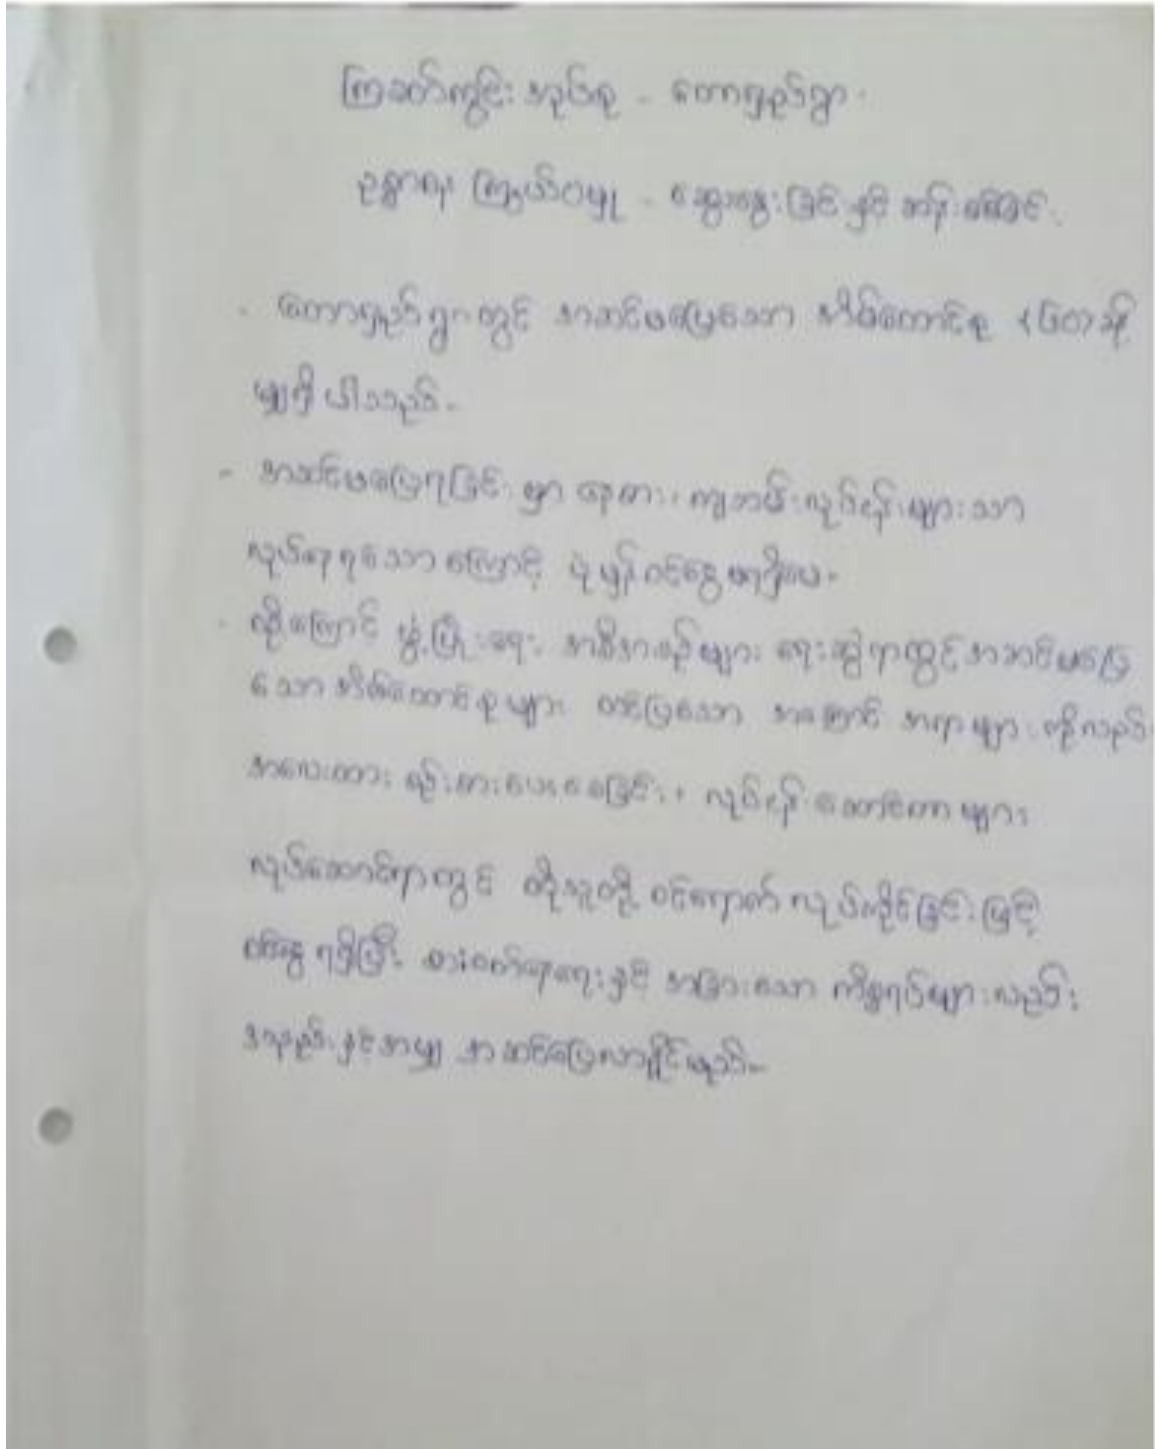 ကြခတ်ကွင်း အုပ်စု - တောရှည်ရွာ
ဥစ္စာဓန ကြွယ်ဝမှု - ဆွေးနွေးခြင်းနှင့် ဆန်းစစ်ခြင်း
- တောရှည်ရွာတွင် အဆင်မပြေသော အိမ်ထောင်စု (၆၀) ခန့်
မျှရှိပါသည်။
- အဆင်မပြေရခြင်းမှာ နေ့စား၊ ကျဘမ်းလုပ်ငန်းများသာ
လုပ်နေရသောကြောင့် ပုံမှန်ဝင်ငွေမရှိပေ။
- ထို့ကြောင့် ဖွံ့ဖြိုးရေး အစီအစဉ်များ ရေးဆွဲရာတွင် အဆင်မပြေ
သော အိမ်ထောင်စုများ တင်ပြသော အကြောင်းအရာများကိုလည်း
အလေးထား စဉ်းစားပေးစေခြင်း၊ လုပ်ငန်းဆောင်တာများ
လုပ်ဆောင်ရာတွင် ထိုသူတို့ ဝင်ရောက်လုပ်ကိုင်ခြင်းဖြင့်
ဝင်ငွေရရှိပြီး စားဝတ်နေရေးနှင့် အခြားသော ကိစ္စရပ်များလည်း
အနည်းနှင့်အမျှ အဆင်ပြေလာနိုင်မည်။